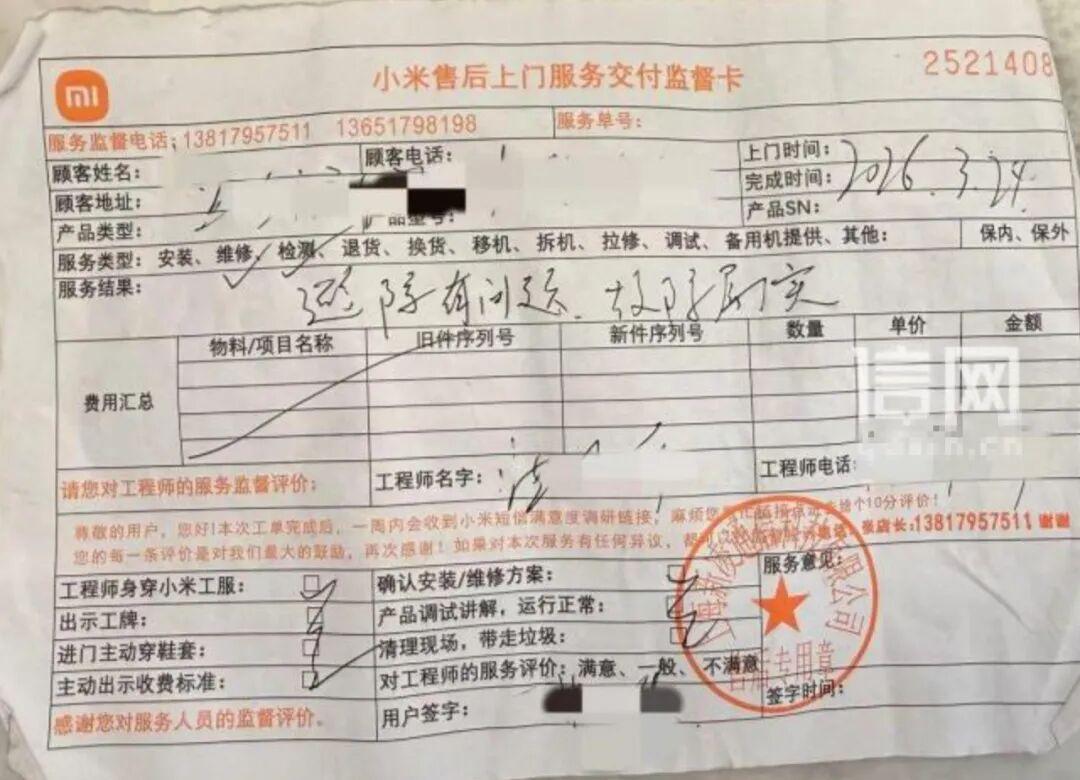 mi
小米售后上门服务交付监督卡
2521408
服务监督电话:13817957511 13651798198
服务单号:
顾客姓名:
顾客电话:
上门时间:
2026.3.24
顾客地址:
完成时间:
产品类型:
产品型号:
产品SN:
服务类型: 安装、维修、检测、退货、换货、移机、拆机、拉修、调试、备用机提供、其他:
保内、保外
服务结果:
障有问题.故障属实
物料/项目名称
旧件序列号
新件序列号
数量
单价
金额
费用汇总
信网
请您对工程师的服务监督评价:
工程师名字:
工程师电话:
尊敬的用户,您好!本次工单完成后,一周内会收到小米短信满意度调研链接,麻烦您
个10分评价!
您的每一条评价是对我们最大的鼓励,再次感谢!如果对本次服务有任何异议,
张店长:13817957511 谢谢
工程师身穿小米工服:
确认安装/维修方案:
服务意见:
出示工牌:
产品调试讲解,运行正常:
进门主动穿鞋套:
清理现场,带走垃圾:
主动出示收费标准:
对工程师的服务评价:满意、一般、不满意
限公司
专用章
签字时间:
感谢您对服务人员的监督评价。
用户签字: